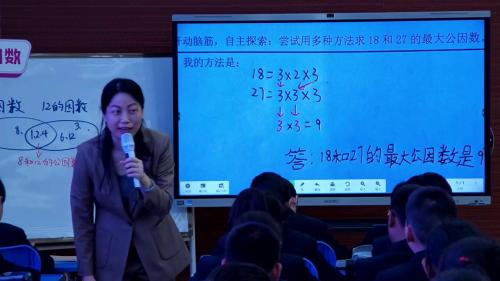 因数
开动脑筋，自主探索：尝试用多种方法求 18 和 27 的最大公因数。
我的方法是：
18=3×2×3
27=3×3×3
3×3=9
答：18和27的最大公因数是9
因数 12的因数
8. 1.2.4 6.12 3.
8和12的公因数